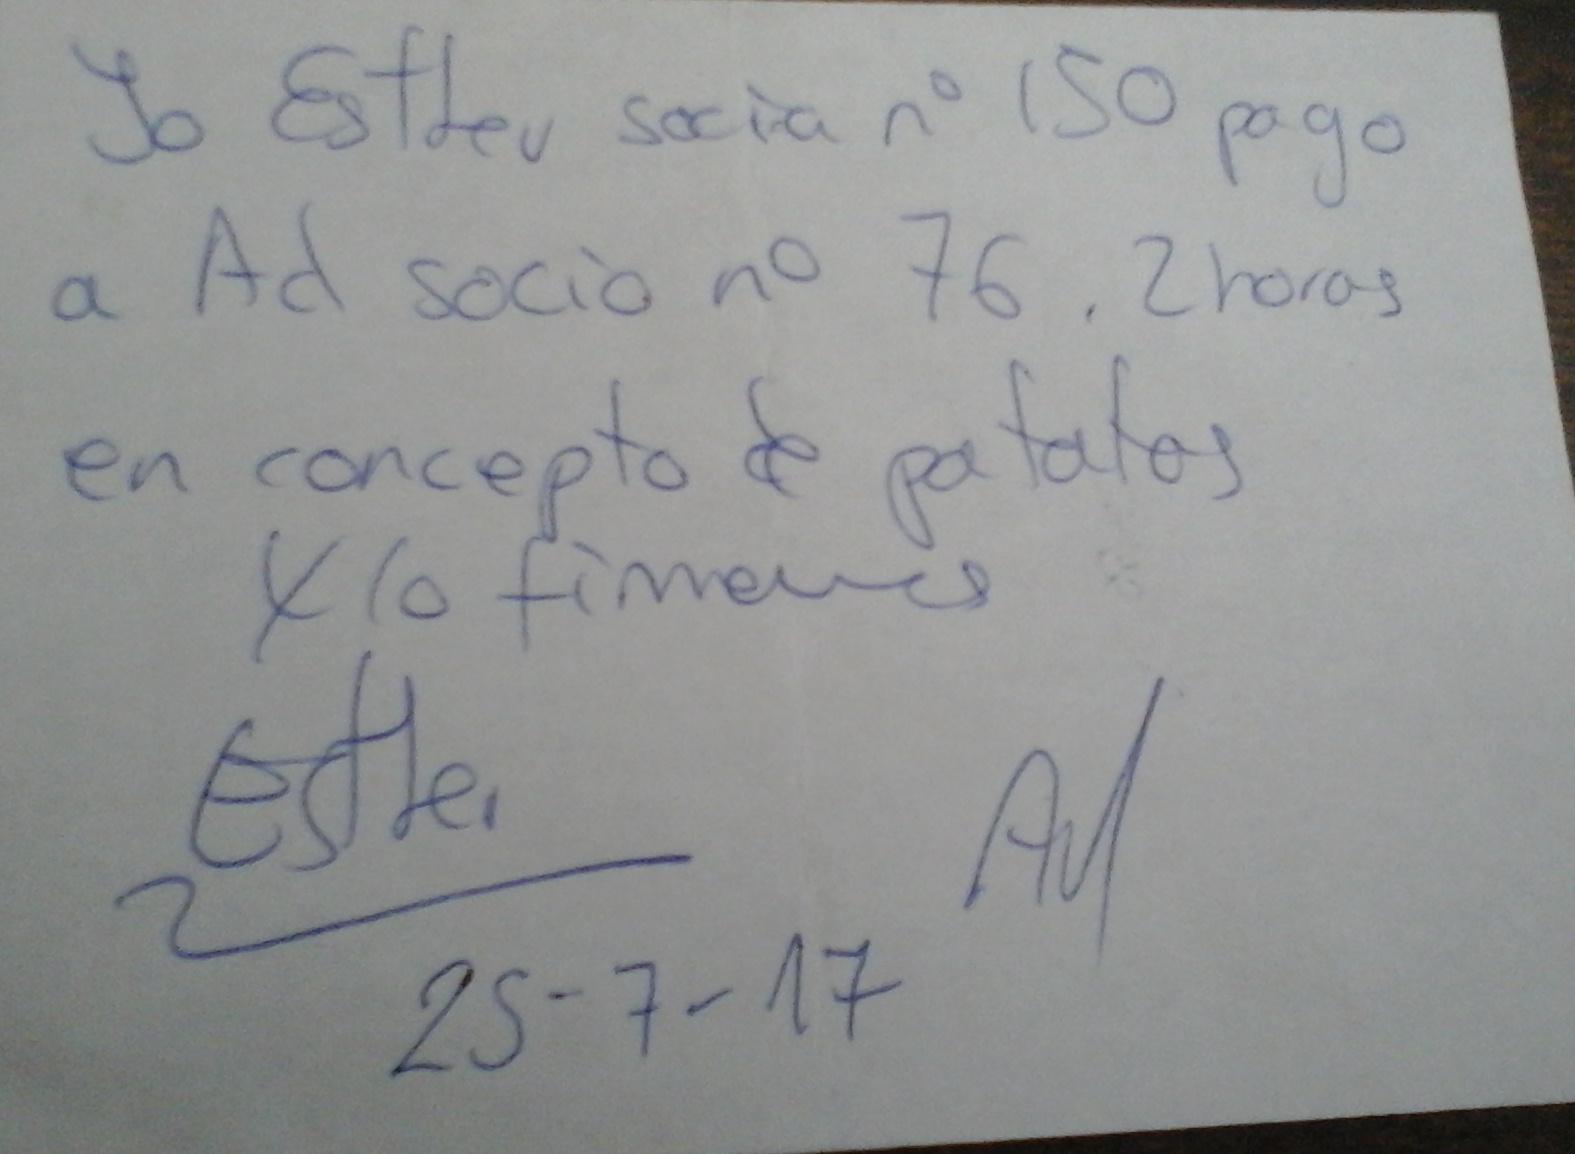 Yo Esther socia nº 150 pago
a Ad socio nº 76. 2 horas
en concepto de patatas
Y lo firmamos
Esther
Ad
25-7-17